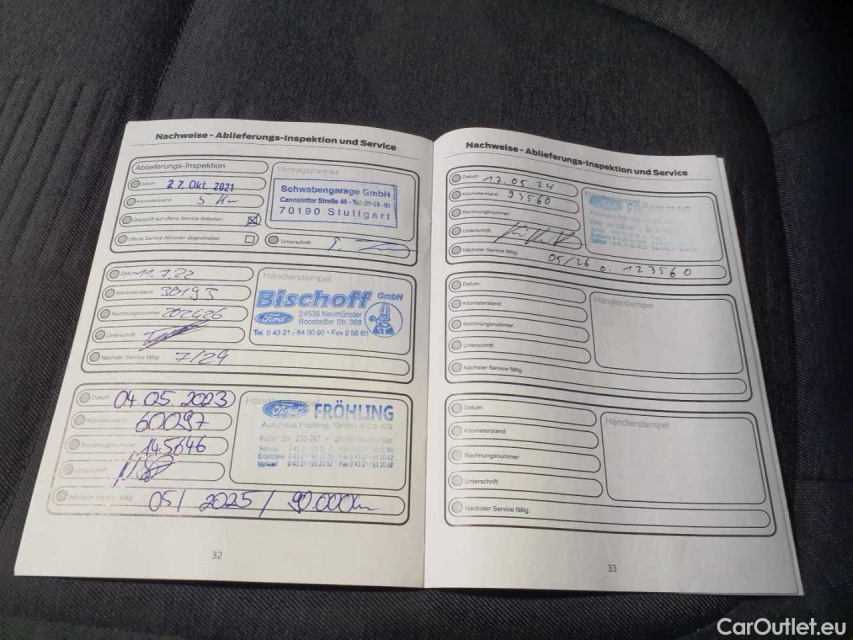 Nachweise - Ablieferungs-Inspektion und Service
Ablieferungs-Inspektion
Vertragspartner
Datum
27. Okt. 2021
Kilometerstand
5 Km
Schwabengarage GmbH
Cannstatter Straße 46 - Tel.
70190 Stuttgart
Überprüft auf offene Service-Aktionen
Offene Service-Aktionen abgearbeitet:
Unterschrift:
Datum
11.7.22
Händlerstempel
Kilometerstand
30193
Bischoff GmbH
Ford
24539 Neumünster
Boostedter Str. 368
Tel. 0 43 21 / 84 00 90 • Fax 2 58 60
Rechnungsnummer
202626
Unterschrift
Nächster Service fällig:
7/24
Datum
04 05.2023
Händlerstempel
Kilometerstand
60097
Ford FRÖHLING
Autohaus Fröhling GmbH & Co. KG
Rechnungsnummer
145646
Unterschrift
Nächster Service fällig:
05/ 2025 / 90.000km
32
Nachweise - Ablieferungs-Inspektion und Service
Datum:
17.05.24
Kilometerstand:
93560
Ford FRÖHLING
Rechnungsnummer:
Unterschrift:
Nächster Service fällig:
05/26 o. 123560
Datum:
Händlerstempel
Kilometerstand:
Rechnungsnummer:
Unterschrift:
Nächster Service fällig:
Datum:
Händlerstempel
Kilometerstand:
Rechnungsnummer:
Unterschrift:
Nächster Service fällig:
33
CarOutlet.eu